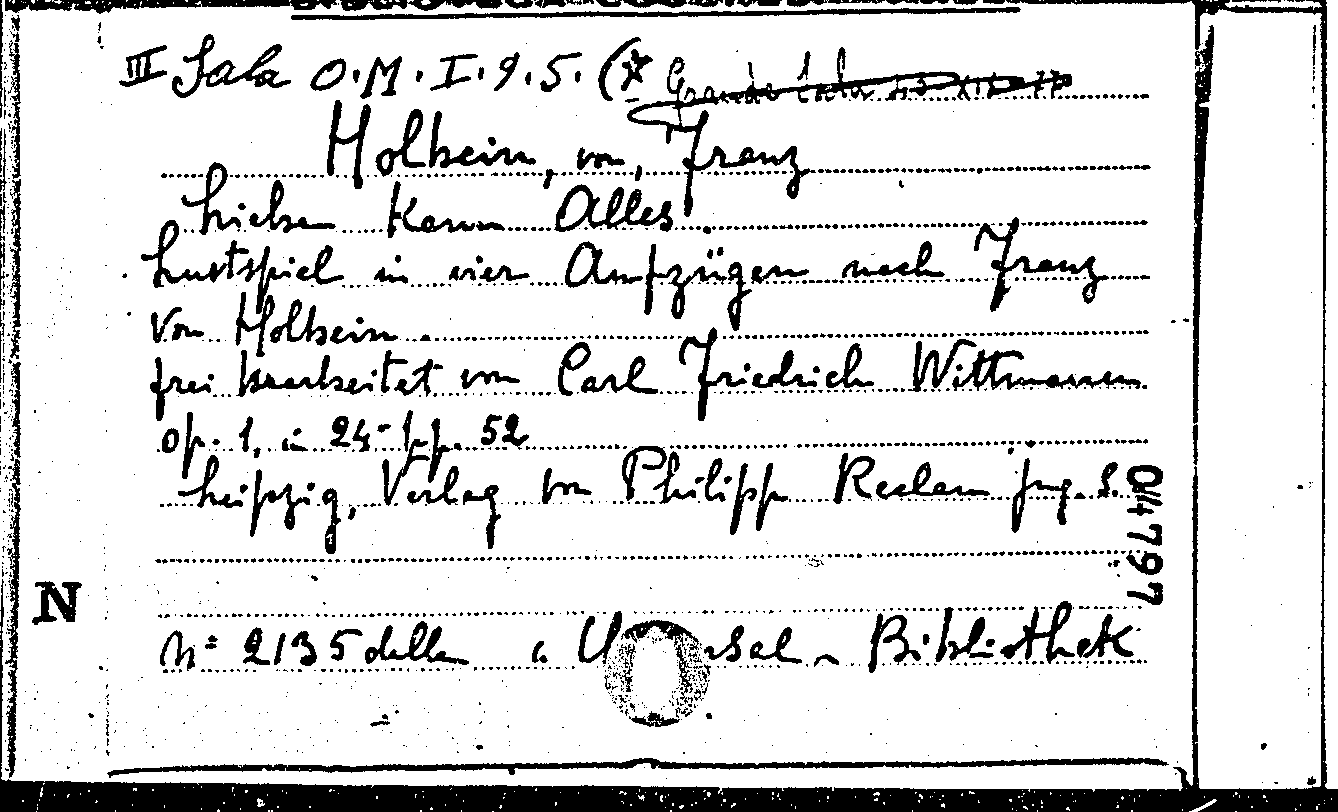 III Sala O.M.I.9.5. (* Grande Sala
Holbein, von, Franz
Liebe Kann Alles.
Lustspiel in vier Aufzügen nach Franz
von Holbein.
frei bearbeitet von Carl Friedrich Wittmann
op. 1, in 24° pp. 52
Leipzig, Verlag von Philipp Reclam jug. S.
04797
N
N° 2135 della " U sal - Bibliothek